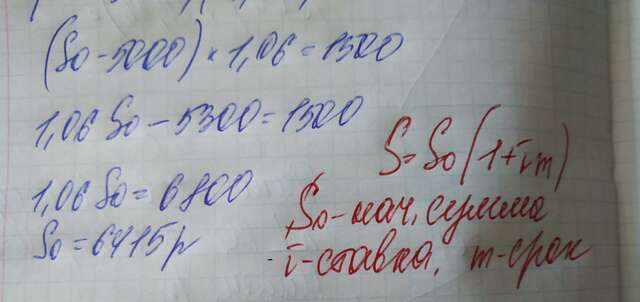 (So - 5000) × 1,06 = 1500
1,06 So - 5300 = 1500
1,06 So = 6800
So = 6415 р
S = So (1 + im)
So - нач. сумма
i - ставка, m - срок